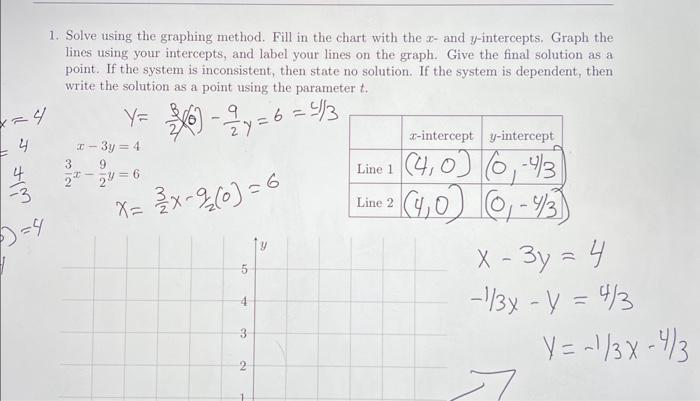 1. Solve using the graphing method. Fill in the chart with the x- and y-intercepts. Graph the
lines using your intercepts, and label your lines on the graph. Give the final solution as a
point. If the system is inconsistent, then state no solution. If the system is dependent, then
write the solution as a point using the parameter t.
x = 4
Y = 3/2(0) - 9/2 y = 6 = 4/3
= 4
x - 3y = 4
4/-3
3/2 x - 9/2 y = 6
x = 3/2 x - 9/2 (0) = 6
) = 4
x-intercept y-intercept
Line 1 (4, 0) (0, -4/3)
Line 2 (4, 0) (0, -4/3)
x - 3y = 4
-1/3x - y = 4/3
y = -1/3x - 4/3
y
5
4
3
2
1